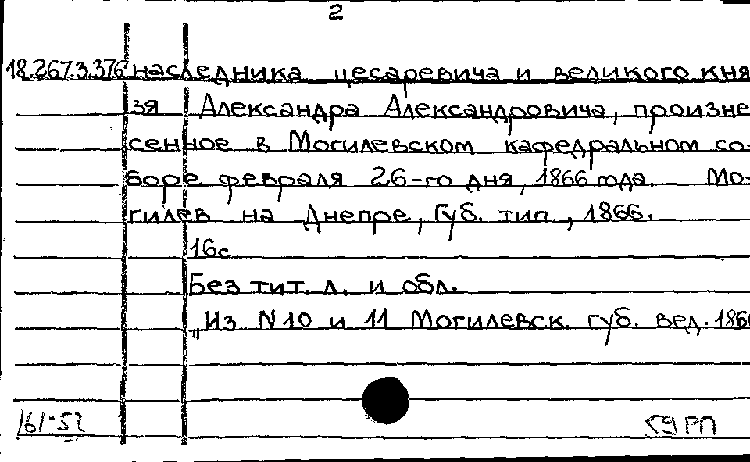 2
18.267.3.376 наследника цесаревича и великого кня
зя Александра Александровича, произне
сенное в Могилевском кафедральном со-
боре февраля 26-го дня, 1866 года. Мо-
гилев на Днепре, Губ. тип., 1866.
16с
Без тит. л. и обл.
"Из N10 и 11 Могилевск. губ. вед. 186
161-52
59 РП